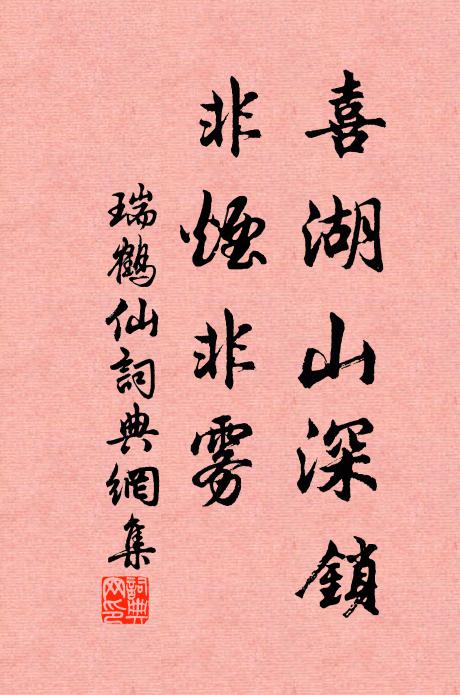 喜湖山深鎖
非煙非雾
瑞鶴仙詞典網集
詞典網印